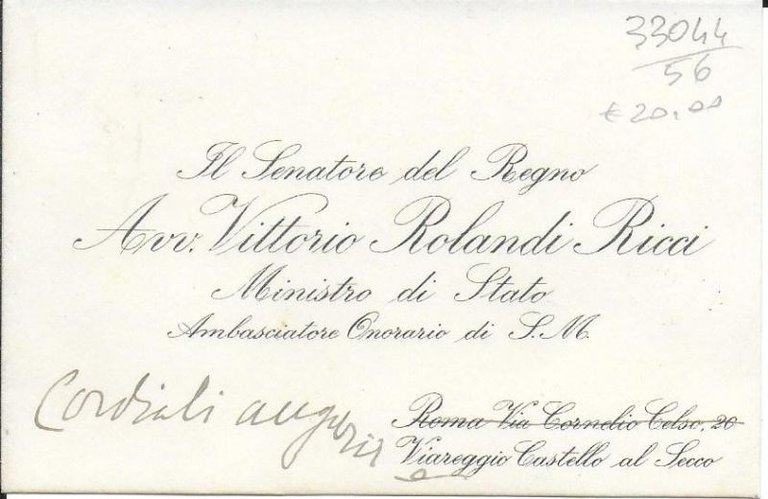 33044
56
€ 20,00
Il Senatore del Regno
Avv. Vittorio Rolandi Ricci
Ministro di Stato
Ambasciatore Onorario di S. M.
Cordiali auguri
Roma Via Cornelio Celso, 20
Viareggio Castello al Secco